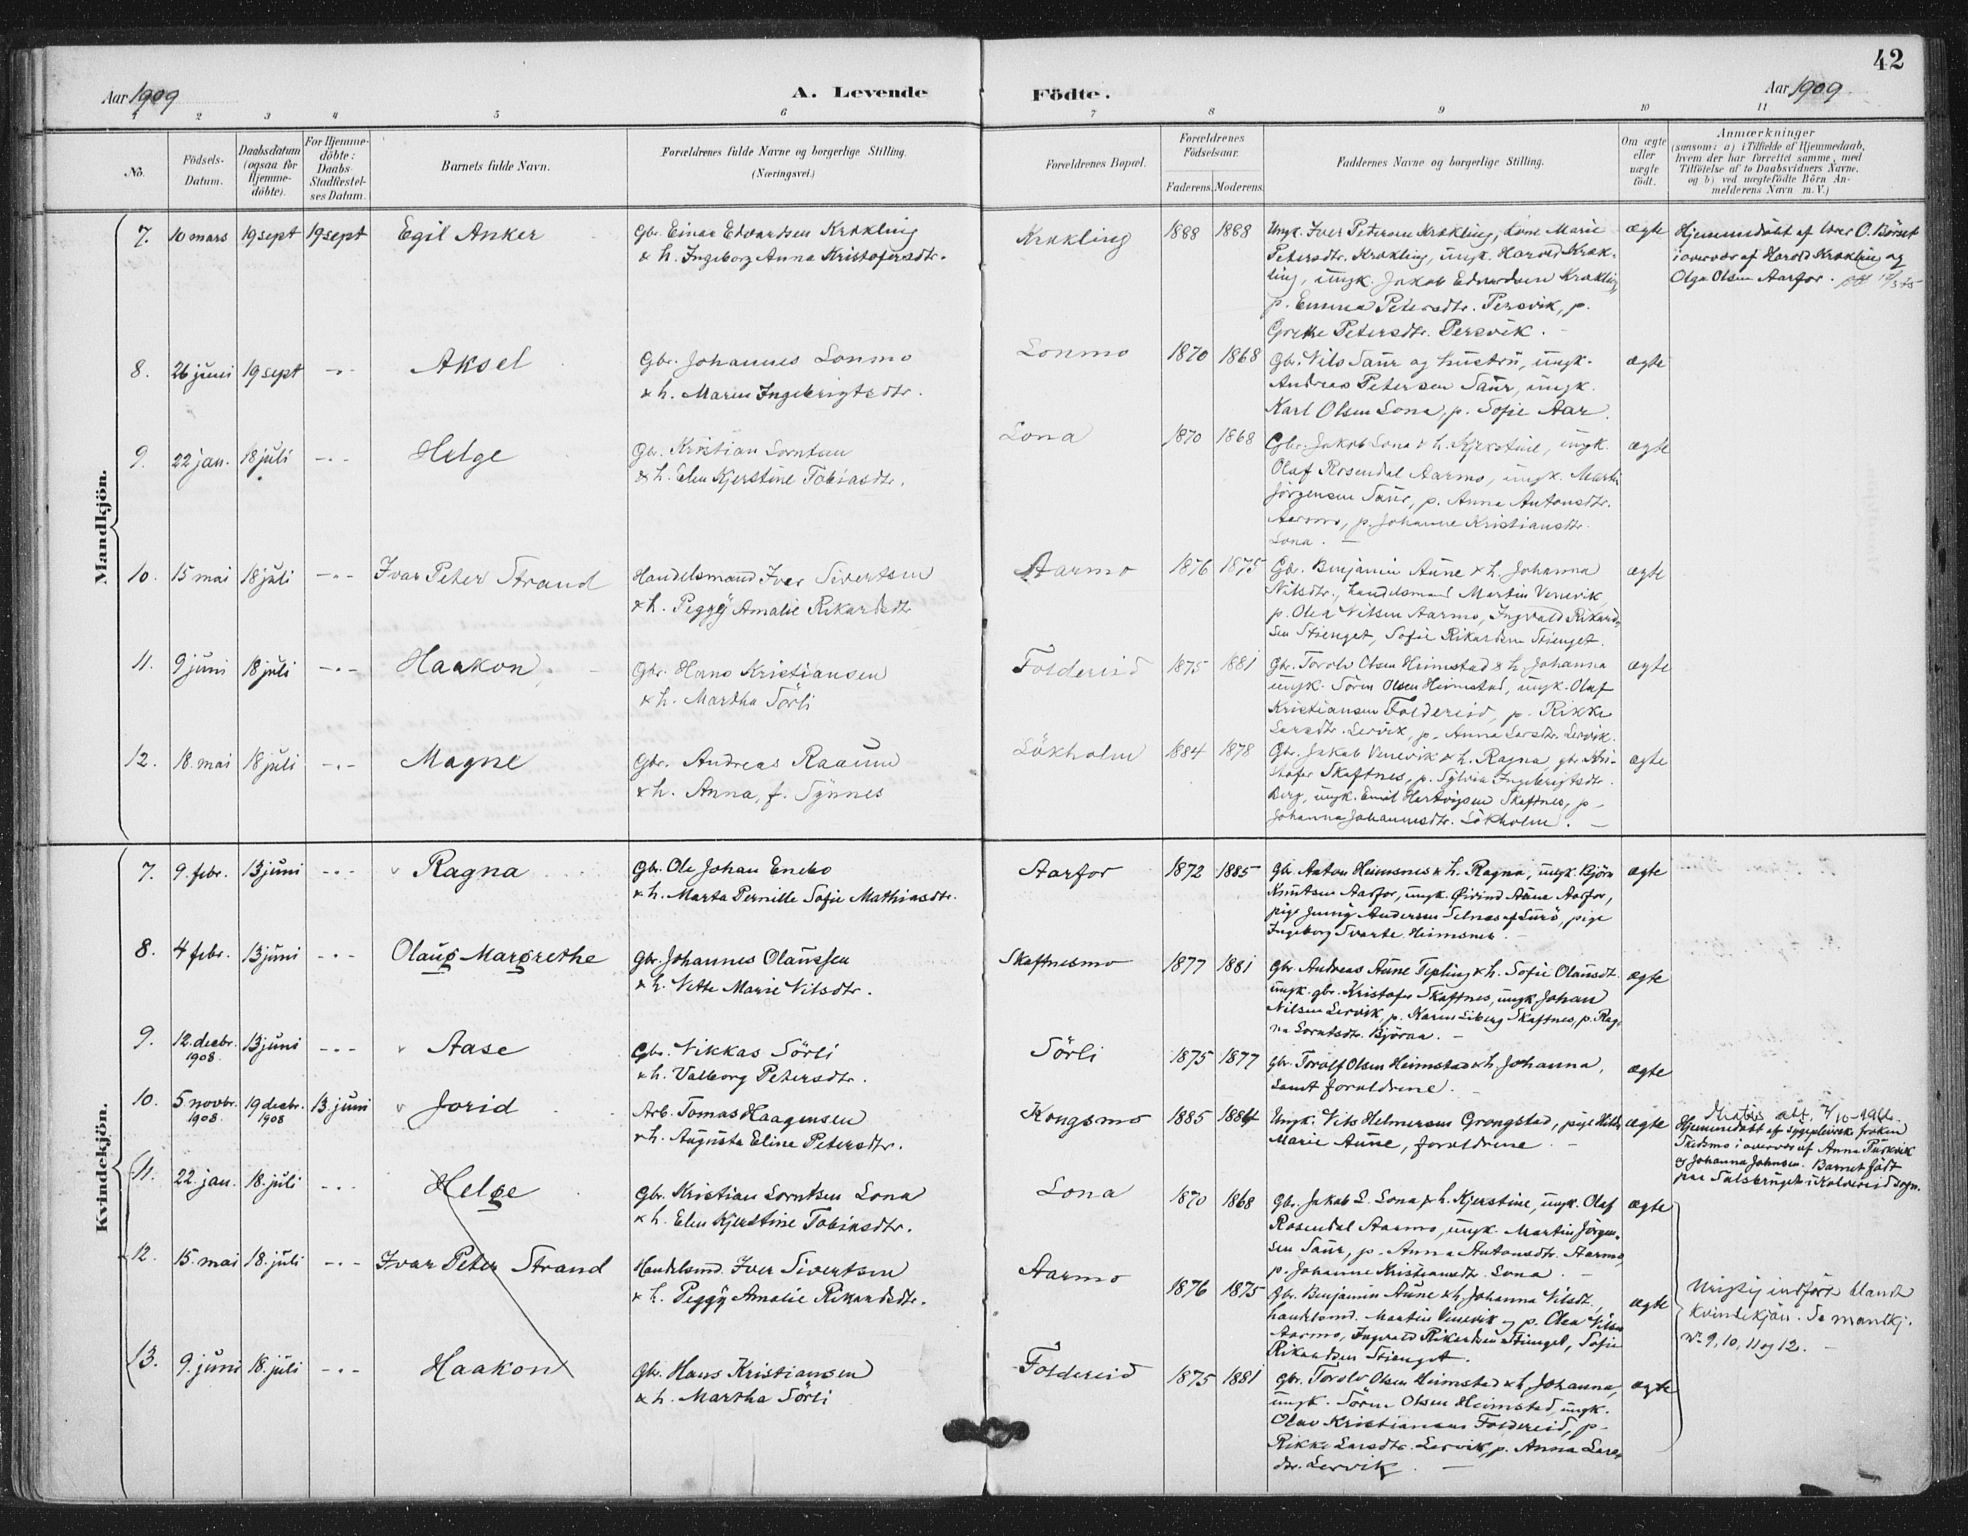 42
Aar 1909
A. Levende
Födte.
Aar 1909
1 2 3 4 5 6 7 8 9 10 11
No.
Födsels-
Datum.
Daabsdatum
(ogsaa for
Hjemme-
döbte).
For Hjemme-
döbte:
Daabs
Stadfæstel-
ses Datum.
Barnets fulde Navn.
Forældrenes fulde Navne og borgerlige Stilling.
(Næringsvei.)
Forældrenes Bopæl.
Forældrenes
Födselsaar.
Faderens. Moderens.
Faddernes Navne og borgerlige Stilling.
Om ægte
eller
uægte
födt.
Anmærkninger
(saasom: a) i Tilfælde af Hjemmedaab,
hvem der har forrettet samme, med
Tilföielse af to Daabsvidners Navne,
og b) ved uægtefödte Börn An-
melderens Navn m. V.)
Mandkjön.
7. 10 mars 19 sept 19 sept Egil Anker
Gbr. Einar Edvardsen Krækling
& h. Ingeborg Anna Kristofersdtr.
Krækling 1888 1888
Ungk. Iver Petersen Krækling, Lone Marie
Petersdtr. Krækling, ungk. Harald Kræk-
ling, ungk. Jakob Edvardsen Krækling
p. Emma Petersdtr. Persvik, p.
Grethe Petersdtr. Persvik. -
ægte
Hjemmedöbt af Iver O. Börset
i overvær af Harald Krækling og
Olga Olsen Aarfor.
8. 26 juni 19 sept -"- Aksel
Gbr. Johannes Lonmo
& h. Maren Ingebrigtsdtr.
Lonmo 1870 1868
Gbr. Nils Saur og hustru, ungk.
Andreas Petersen Saur, ungk.
Karl Olsen Lona, p. Sofie Aar.
ægte
9. 22 jan. 18 juli -"- Helge
Gbr. Kristian Lorntsen
& h. Elen Kjerstine Tobiasdtr.
Lona 1870 1868
Gbr. Jakob Lona & h. Kjerstine, ungk.
Olaf Rosendal Aarmo, ungk. Martin
Jörgensen Saur, p. Anna Antonsdtr.
Aarmo, p. Johanne Kristiansdtr.
Lona. -
ægte
10. 15 mai 18 juli -"- Ivar Peter Strand
Handelsmand Iver Sivertsen
& h. Peggy Amalie Rikardsdtr
Aarmo 1876 1875
Gbr. Benjamin Aune & h. Johanna
Nilsdtr., handelsmand Martin Venevik
p. Olea Nilsen Aarmo, Ingvald Rikard-
sen Stienget, Sofie Rikardsen Stienget.
ægte
11. 9 juni 18 juli -"- Haakon
Gbr. Hans Kristiansen
& h. Martha Sörli
Foldereid 1875 1881
Gbr. Torolv Olsen Heimstad & h. Johanna
ungk. Sören Olsen Heimstad, ungk. Olaf
Kristiansen Foldereid, p. Rikke
Larsdtr. Lervik, p. Anna Larsdtr. Lervik.
ægte
12. 18. mai 18 juli -"- Magne
Gbr. Andreas Raaum
& h. Anna, f. Synnes
Lökholm 1884 1878
Gbr. Jakob Venevik & h. Ragna, gbr. Kri-
stofer Skaftnes, p. Sylvia Ingebrigtsdtr.
Berg, ungk. Emil Hartvigsen Skaftnes, p.
Johanna Johannesdtr. Lökholm. -
ægte
Kvindekjön.
7. 9. febr. 13 juni -"- Ragna
Gbr. Ole Johan Enebo
& h. Marta Pernille Sofie Mathiasdtr.
Aarfor 1872 1885
Gbr. Anton Heimsnes & h. Ragna, ungk. Björn
Knutsen Aarfor, ungk. Öivind Aune Aarfor,
pige Jenny Andersen Selnes af Surö, pige
Ingeborg Svarte Heimsnes. -
ægte
8. 4 febr. 13 juni -"- Olaug Margrethe
Gbr. Johannes Olaussen
& h. Nette Marie Nilsdtr.
Skaftnesmo 1877 1881
Gbr. Andreas Aune Tepling & h. Sofie Olausdt.
ungk. gbr. Kristofer Skaftnes, ungk. Johan
Nilsen Lervik, p. Karen Liberg Skaftnes, p. Rag-
na Lorntsdtr. Björaa. -
ægte
9. 12. decbr. 1908. 13 juni -"- Aase
Gbr. Nikkas Sörli
& h. Valborg Petersdtr.
Sörli 1875 1877
Gbr. Torolf Olsen Heimstad & h. Johanna,
samt forældrene.
ægte
10. 5 novbr. 1908. 19 decbr. 1908 13. juni Jorid
Arb. Tomas Haagensen
& h. Augusta Eline Petersdtr.
Kongsmo 1885 1884
Ungk. Nils Helmersen Grongstad, pige Hilda
Marie Aune, forældrene. -
ægte
Hjemmedöbt af sygepleierske fröken
Skedsmo i overvær af Anna Purkvik
og Johanna Johnsen. Barnet födt
paa Salsbruket i Kolvereid sogn.
11. 22. jan. 18. juli -"- Helge
Gbr. Kristian Lorntsen Lona
& h. Elen Kjerstine Tobiasdtr.
Lona 1870 1868
Gbr. Jakob L. Lona & h. Kjerstine, ungk. Olaf
Rosendal Aarmo, ungk. Martin Jörgen-
sen Saur, p. Anna Antonsdtr. Aarmo,
p. Johanne Kristiansdtr. Lona. -
ægte
12. 15. mai 18. juli -"- Ivar Peter Strand
Handelsmd. Iver Sivertsen
& h. Peggy Amalie Rikardsdtr.
Aarmo 1876 1875
Gbr. Benjamin Aune & h. Johanna Nilsdt.,
handelsmd. Martin Venevik og p. Olea Nilsen
Aarmo, Ingvald Rikardsen Stienget, Sofie
Rikardsen Stienget.
ægte
Urigtig indfört blandt
kvindekjön. Se mandkj.
nr. 9, 10, 11 og 12. -
13. 9. juni 18. juli -"- Haakon
Gbr. Hans Kristiansen
& h. Martha Sörli
Foldereid 1875 1881
Gbr. Torolv Olsen Heimstad & h. Johanna,
ungk. Sören Olsen Heimstad, ungk.
Olav Kristiansen Foldereid, p.
Rikke Larsdtr. Lervik, p. Anna Lars-
dtr. Lervik. -
ægte